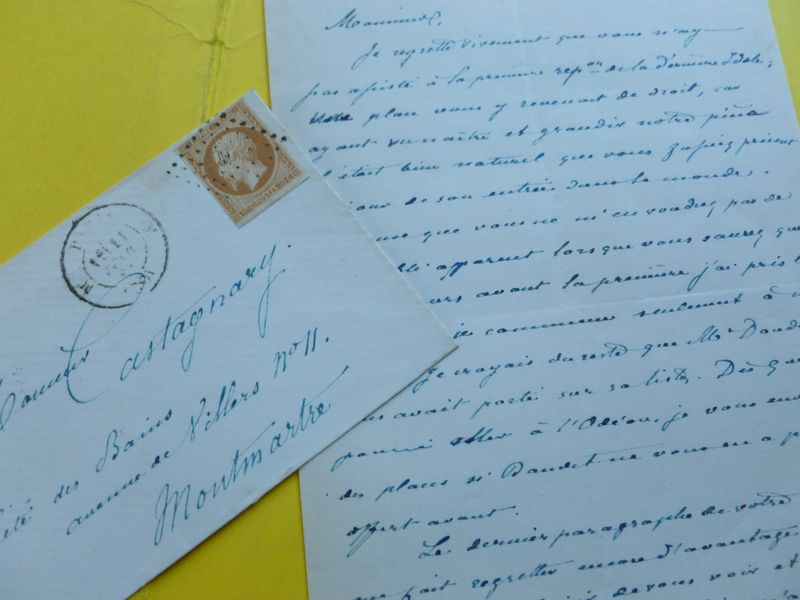 Monsieur.
Je regrette vivement que vous n'ay
pas assisté à la première repon de la dernière Idole;
plan vous y revenait de droit, car
ayant vu naître et grandir notre pièce
était bien naturel que vous
jour de son entrée dans le monde.
que vous ne m'en voudrez pas de
apparent lorsque vous saurez que
avant la première j'ai pris
je commence seulement à
Je croyais du reste que Mr Daud
avait porté sur sa liste. Dès que
pourrai aller à l'Odéon, je vous env
des places si Daudet ne vous en a p
offert avant.
Le dernier paragraphe de votre
me fait regretter encore d'avantage
de vous voir et
Monsieur Castagnary.
Cité des Bains
avenue de Villers No 11.
Montmartre